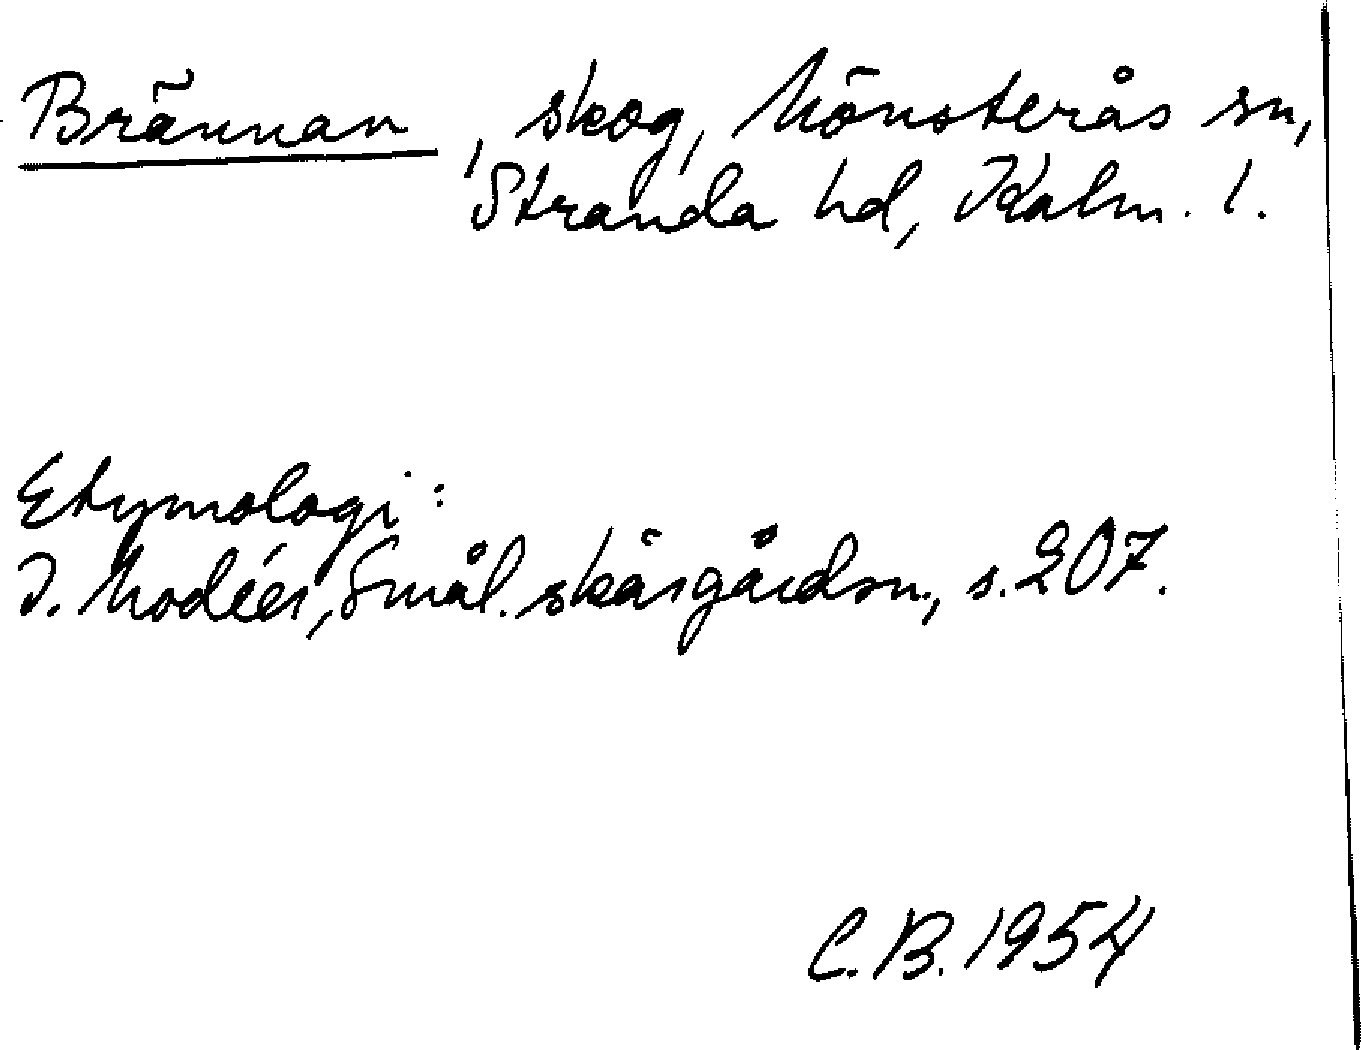 Brännan, skog, Mönsterås sn,
Stranda hd, Kalm. l.
Etymologi:
I. Modéer, Smål. skärgårdsn., s. 207.
C. B. 1954